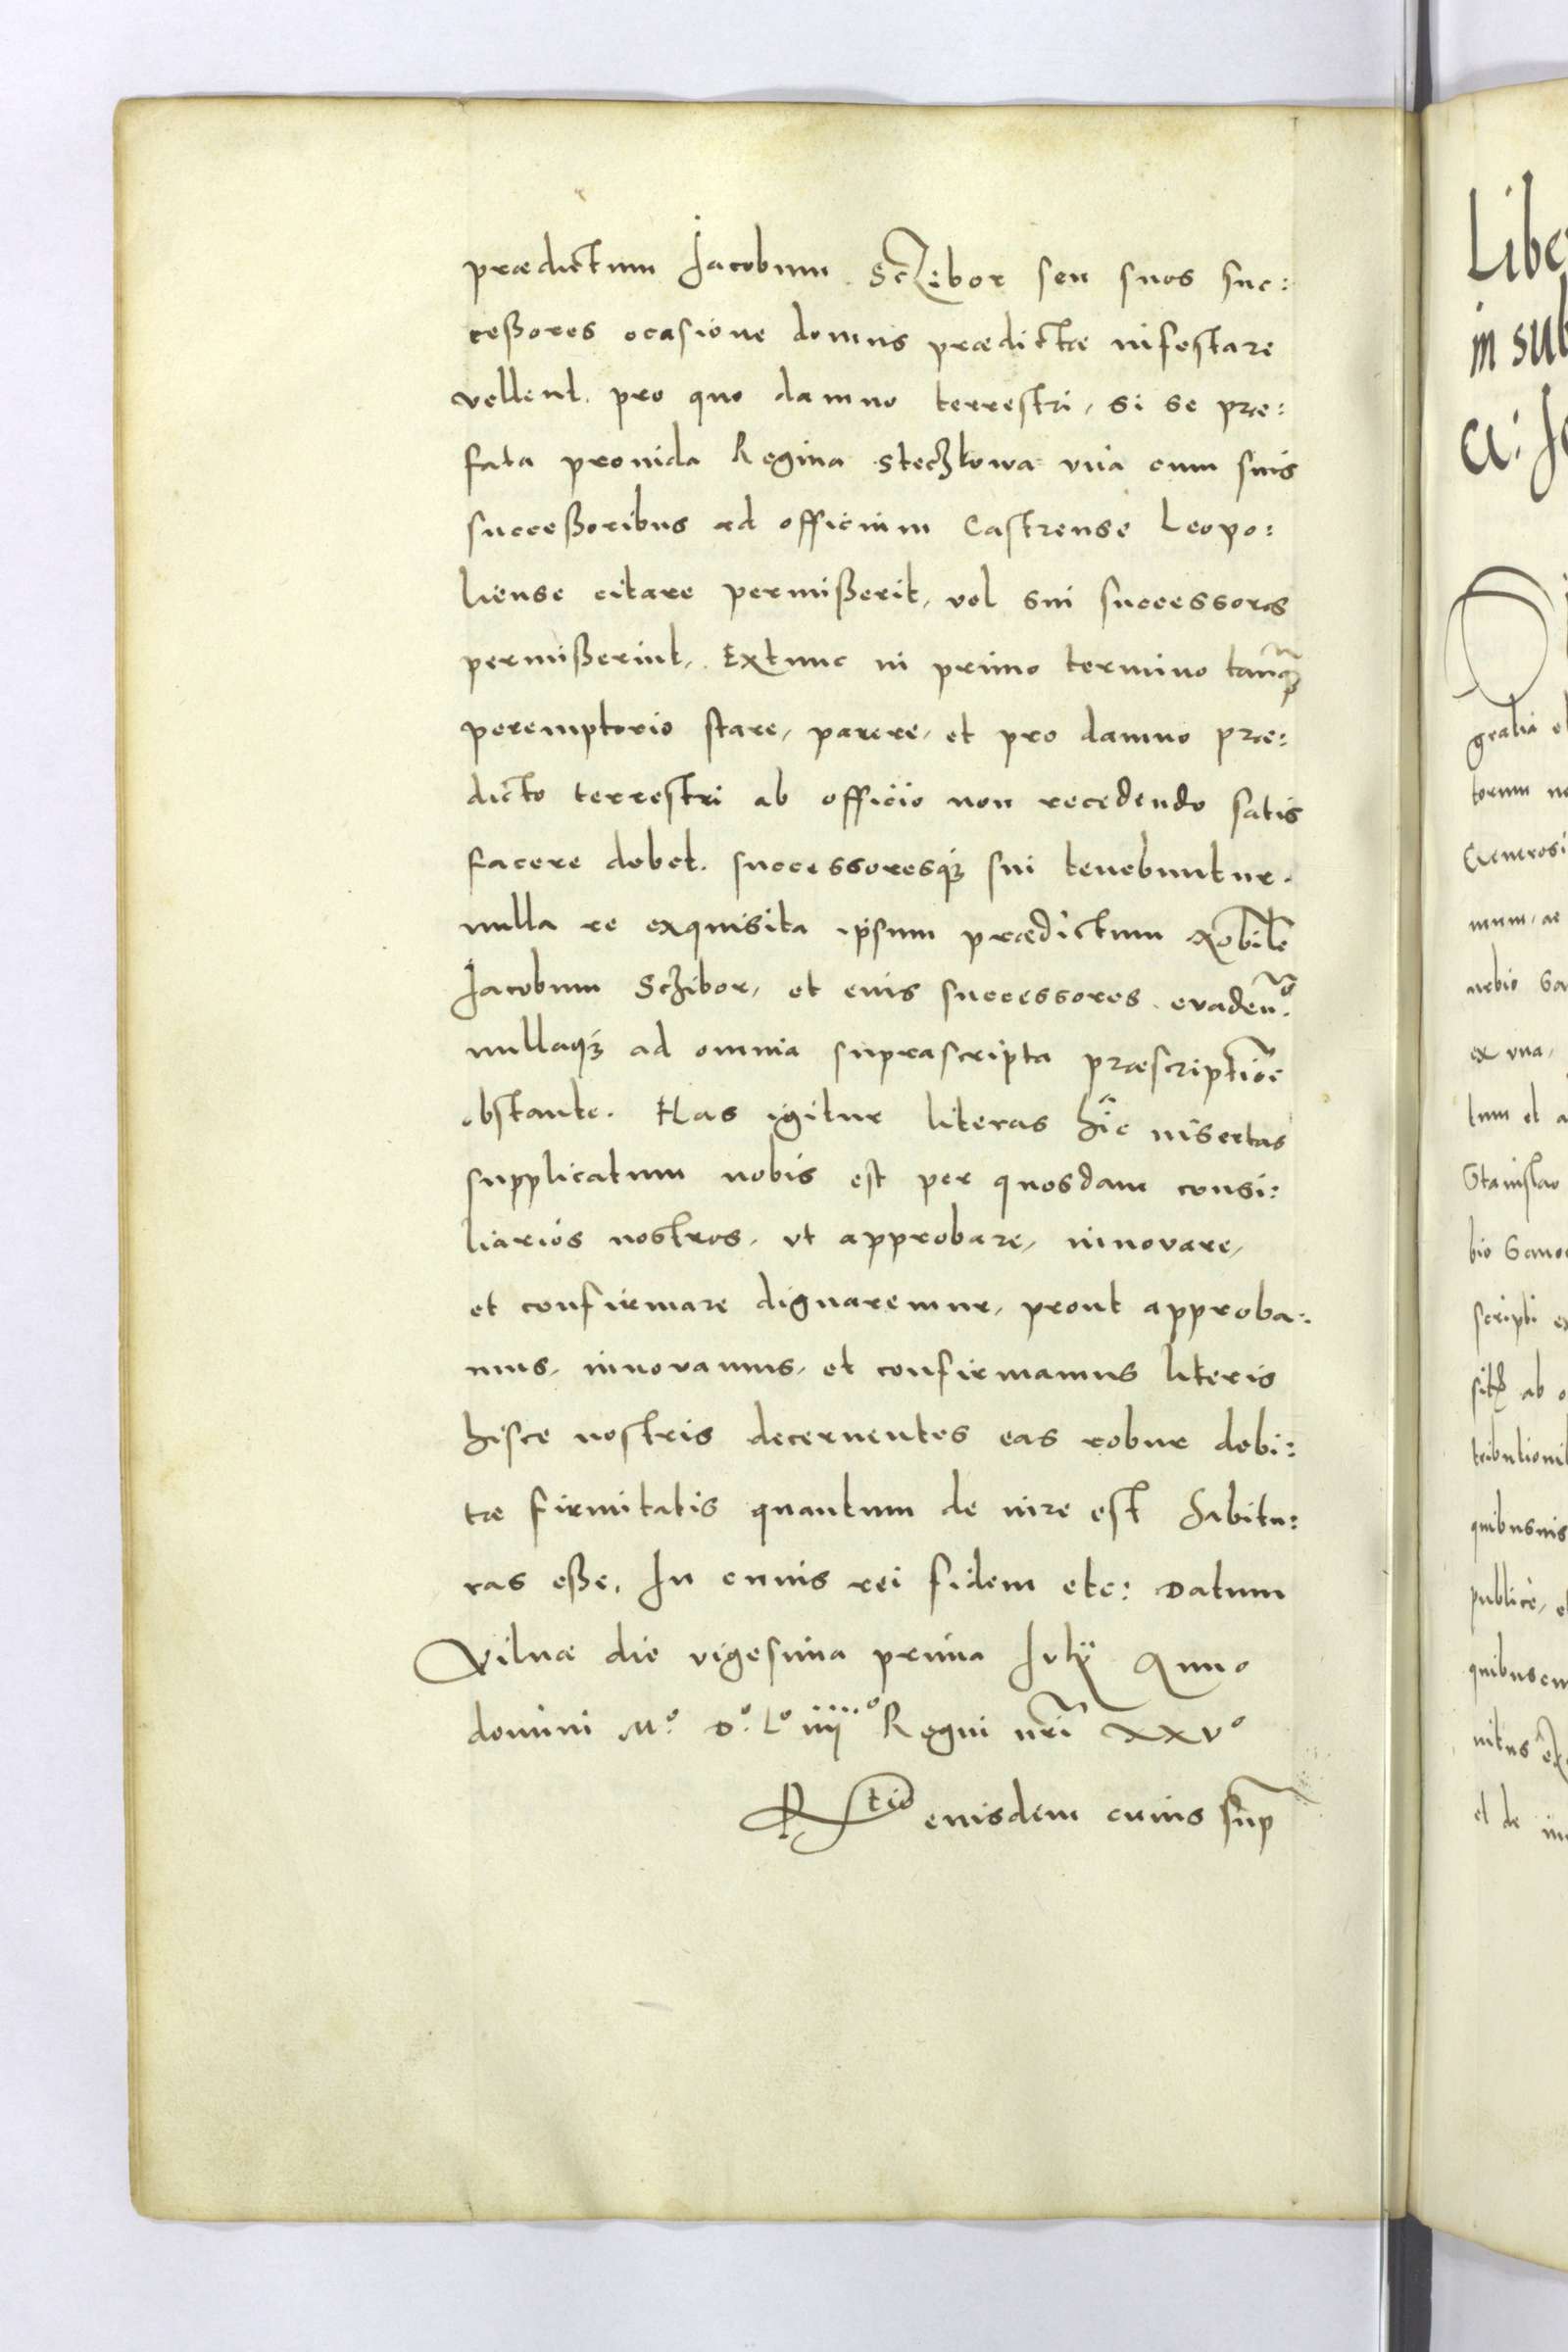 prædictum Jacobum Sczibor seu suos suc:
ceßores ocasione domus prædictæ infestare
vellent. pro quo damno terrestri, si se præ:
fata provida Regina Steczkowa una cum suis
succeßoribus ad officium Castrense Leopo:
liense citare permißerit, vel sui successores
permißerint, Extunc in primo termino tanq̃
peremptorio stare, parere, et pro damno præ:
dicto terrestri ab officio non recedendo satis
facere debet. successoresq́ꝫ sui tenebuntur.
nulla re exquisita ipsum prædictum Nobil̃e
Jacobum Sczibor, et eius successores evadenº.
nullaq́ꝫ ad omnia suprascripta præscriptiõe
obstante. Has igitur literas hîc insertas
supplicatum nobis est per quosdam consi:
liarios nostros, ut approbare, innovare,
et confirmare dignaremur, prout approba:
mus, innovamus, et confirmamus literis
hisce nostris decernentes eas robur debi:
tæ firmitatis quantum de iure est habitu:
ras eße. In cuius rei fidem etc: Datum
Vilnæ die vigesima prima Iulij Anno
domini Mº. Dº. Lº iiijº Regni nr̃i XXVº
Rtio eiusdem cuius sup̃
Libe
in sub
gratia
torum
Generosi
mum, ac
ex una,
tum et a
Stanislao
bio Sano
scripti ex
ab o
tributioni
quibusuis
publicè, e
quibuscu
et de in